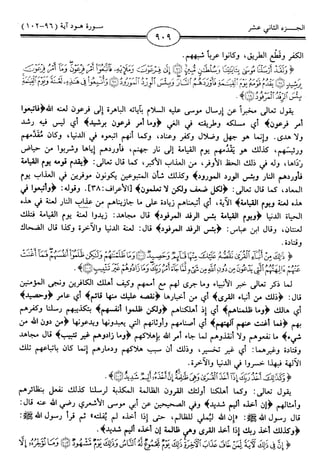 الجـــزء الثاني عشر
٩٠٩
سـورة هـود آية (٩٦-١٠٢)
الكفر وقُطّع الطريق، وكانوا عرباً شبههم.
﴿وَلَقَدْ أَرْسَلْنَا مُوسَى بِآيَاتِنَا وَسُلْطَانٍ مُبِينٍ ۝ إِلَى فِرْعَوْنَ وَمَلَئِهِ فَاتَّبَعُوا أَمْرَ فِرْعَوْنَ وَمَا أَمْرُ فِرْعَوْنَ
بِرَشِيدٍ ۝ يَقْدُمُ قَوْمَهُ يَوْمَ الْقِيَامَةِ فَأَوْرَدَهُمُ النَّارَ وَبِئْسَ الْوِرْدُ الْمَوْرُودُ ۝ وَأُتْبِعُوا فِي هَذِهِ لَعْنَةً وَيَوْمَ الْقِيَامَةِ
بِئْسَ الرِّفْدُ الْمَرْفُودُ ۝﴾.
يقول تعالى مخبراً عن إرسال موسى عليه السلام بآياته الباهرة إلى فرعون لعنه الله ﴿فاتبعوا
أمر فرعون﴾ أي مسلكه وطريقته في الغي ﴿وما أمر فرعون برشيد﴾ أي ليس فيه رشد
ولا هدى. وإنما هو جهل وضلال وكفر وعناد، وكما أنهم اتبعوه في الدنيا، وكان مُقَدَّمهم
ورئيسهم، كذلك هو يقدُمهم يوم القيامة إلى نار جهنم، فأوردهم إياها وشربوا من حياض
رَدَاها، وله في ذلك الحظ الأوفر، من العذاب الأكبر، كما قال تعالى: ﴿يقدم قومه يوم القيامة
فأوردهم النار وبئس الورد المورود﴾ وكذلك شأن المتبوعين يكونون موفرين في العذاب يوم
المعاد، كما قال تعالى: ﴿لكل ضعف ولكن لا تعلمون﴾ [الأعراف: ٣٨]. وقوله: ﴿وأتبعوا في
هذه لعنة ويوم القيامة﴾ الآية، أي أتبعناهم زيادة على ما جازيناهم من عذاب النار لعنة في هذه
الحياة الدنيا ﴿ويوم القيامة بئس الرفد المرفود﴾ قال مجاهد: زيدوا لعنة يوم القيامة فتلك
لعنتان، وقال ابن عباس: ﴿بئس الرفد المرفود﴾ قال: لعنة الدنيا والآخرة وكذا قال الضحاك
وقتادة.
﴿ذَلِكَ مِنْ أَنْبَاءِ الْقُرَى نَقُصُّهُ عَلَيْكَ مِنْهَا قَائِمٌ وَحَصِيدٌ ۝ وَمَا ظَلَمْنَاهُمْ وَلَكِنْ ظَلَمُوا أَنْفُسَهُمْ فَمَا أَغْنَتْ
عَنْهُمْ آلِهَتُهُمُ الَّتِي يَدْعُونَ مِنْ دُونِ اللَّهِ مِنْ شَيْءٍ لَمَّا جَاءَ أَمْرُ رَبِّكَ وَمَا زَادُوهُمْ غَيْرَ تَتْبِيبٍ ۝﴾.
لما ذكر تعالى خبر الأنبياء وما جرى لهم مع أممهم وكيف أهلك الكافرين ونجى المؤمنين
قال: ﴿ذلك من أنباء القرى﴾ أي من أخبارها ﴿نقصه عليك منها قائم﴾ أي عامر ﴿وحصيد﴾
أي هالك ﴿وما ظلمناهم﴾ أي إذ أهلكناهم ﴿ولكن ظلموا أنفسهم﴾ بتكذيبهم رسلنا وكفرهم
بهم ﴿فما أغنت عنهم آلهتهم﴾ أي أصنامهم وأوثانهم التي يعبدونها ويدعونها ﴿من دون الله من
شيء﴾ ما نفعوهم ولا أنقذوهم لما جاء أمر الله بإهلاكهم ﴿وما زادوهم غير تتبيب﴾ قال مجاهد
وقتادة وغيرهما: أي غير تخسير، وذلك أن سبب هلاكهم ودمارهم إنما كان باتباعهم تلك
الآلهة فبهذا خسروا في الدنيا والآخرة.
﴿وَكَذَلِكَ أَخْذُ رَبِّكَ إِذَا أَخَذَ الْقُرَى وَهِيَ ظَالِمَةٌ إِنَّ أَخْذَهُ أَلِيمٌ شَدِيدٌ ۝﴾.
يقول تعالى: وكما أهلكنا أولئك القرون الظالمة المكذبة لرسلنا كذلك نفعل بنظائرهم
وأمثالهم ﴿إن أخذه أليم شديد﴾ وفي الصحيحين عن أبي موسى الأشعري رضي الله عنه قال:
قال رسول الله ﷺ: «إن الله ليُملي للظالم، حتى إذا أخذه لم يُفلته» ثم قرأ رسول الله ﷺ:
﴿وكذلك أخذ ربك إذا أخذ القرى وهي ظالمة إن أخذه أليم شديد﴾.
﴿إِنَّ فِي ذَلِكَ لَآيَةً لِمَنْ خَافَ عَذَابَ الْآخِرَةِ ذَلِكَ يَوْمٌ مَجْمُوعٌ لَهُ النَّاسُ وَذَلِكَ يَوْمٌ مَشْهُودٌ ۝ وَمَا نُؤَخِّرُهُ إِلَّا